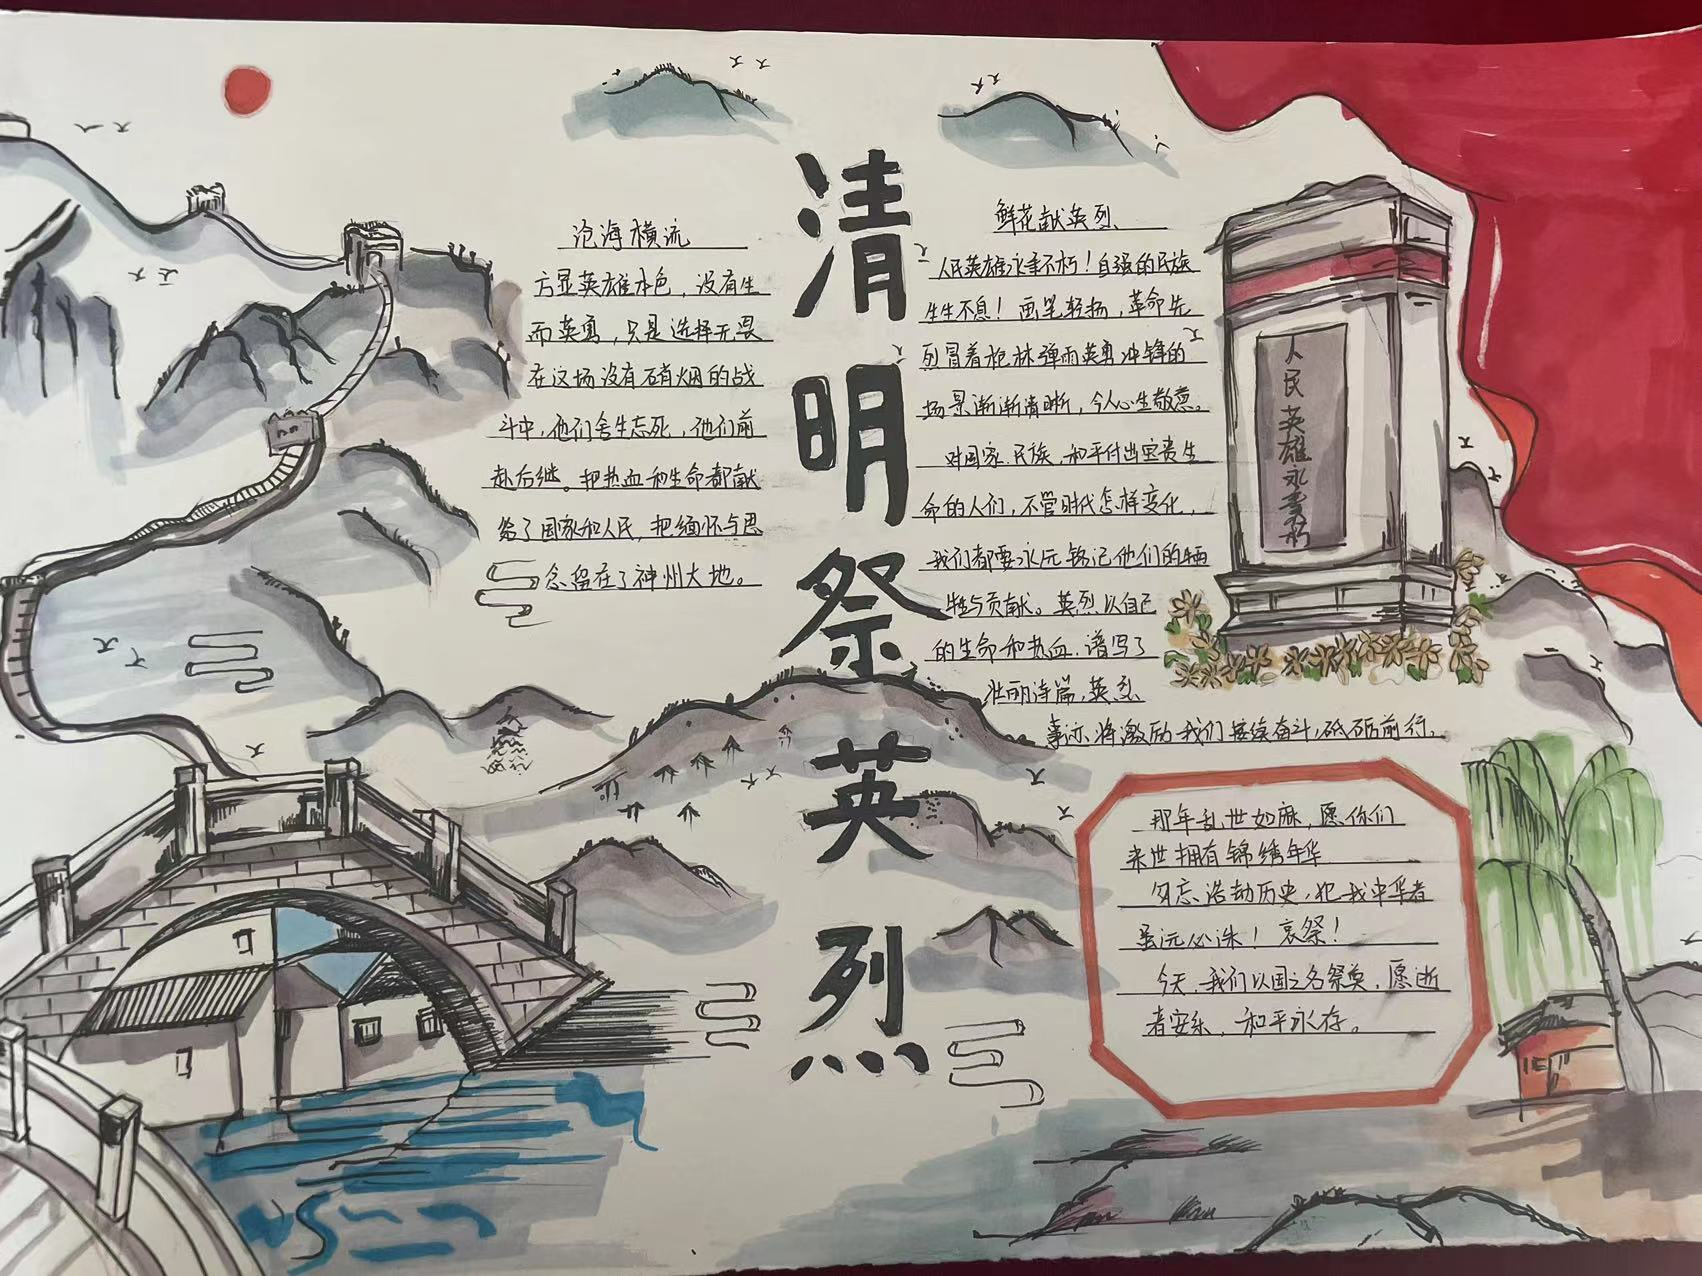 清明祭英烈
沧海横流
方显英雄本色，没有生
而英勇，只是选择无畏
在这场没有硝烟的战
斗中，他们舍生忘死，他们前
赴后继。把热血和生命都献
给了国家和人民，把缅怀与思
念留在了神州大地。
鲜花献英烈
人民英雄永垂不朽！自强的民族
生生不息！画笔轻扬，革命先
烈冒着枪林弹雨英勇冲锋的
场景渐渐清晰，令人心生敬意。
对国家、民族、和平付出宝贵生
命的人们，不管时代怎样变化，
我们都要永远铭记他们的牺
牲与贡献。英烈以自己
的生命和热血，谱写了
壮丽诗篇，英烈
事迹将激励我们接续奋斗，砥砺前行。
人民英雄永垂不朽
那年乱世如麻，愿你们
来世拥有锦绣年华
勿忘浩劫历史，犯我中华者
虽远必诛！哀祭！
今天，我们以国之名祭奠，愿逝
者安乐，和平永存。